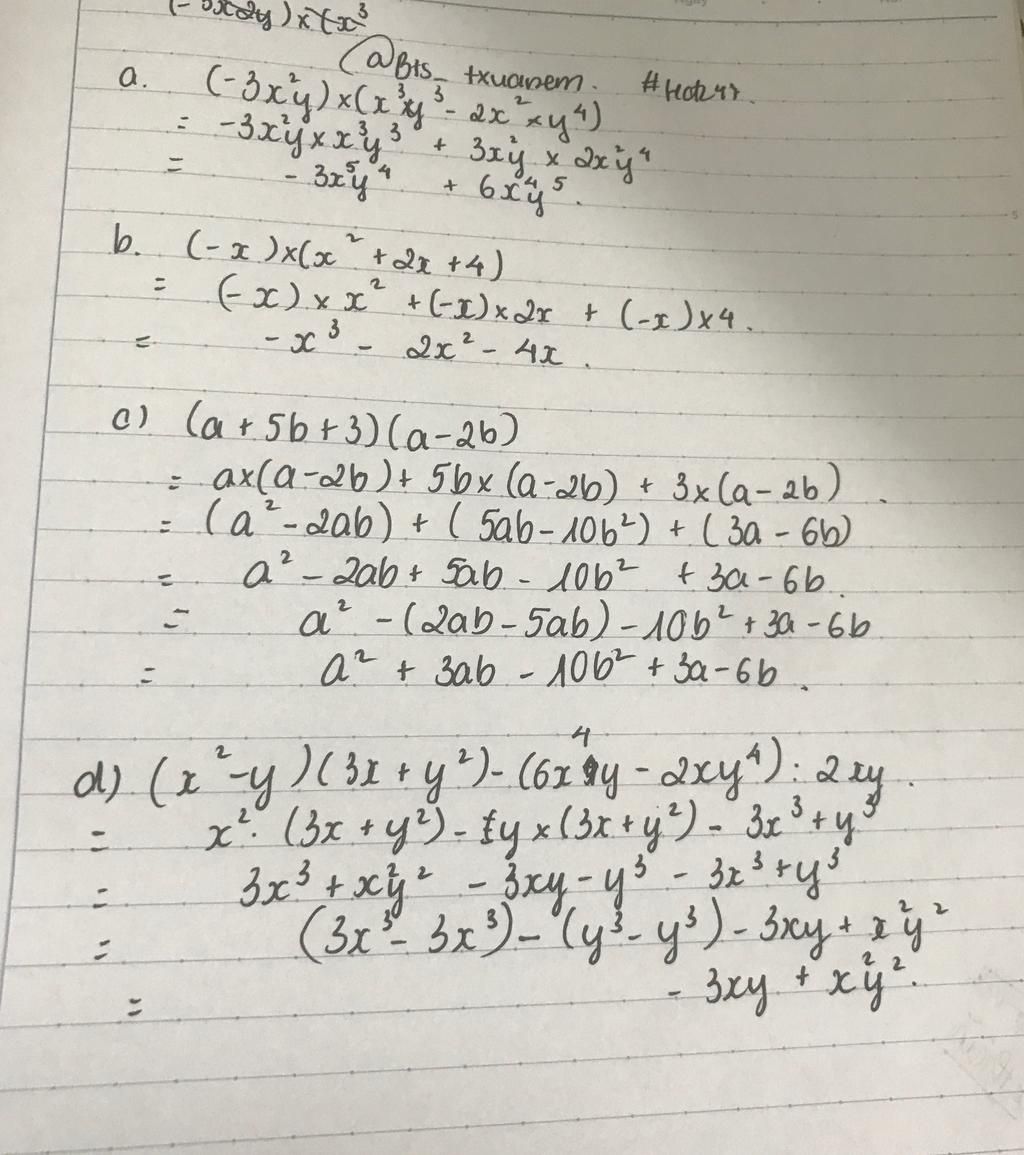 (-3x2y) × (-x³
@Bts_txuanem. #Hoc24.
a. (-3x²y)×(x³y³ - 2x² × y⁴)
= -3x²y × x³y³ + 3x²y × 2x²y⁴
= - 3x⁵y⁴ + 6x⁴y⁵.
b. (-x)×(x² + 2x + 4)
= (-x) × x² + (-x) × 2x + (-x) × 4.
= - x³ - 2x² - 4x.
c) (a + 5b + 3)(a - 2b)
= a×(a-2b) + 5b×(a-2b) + 3×(a-2b).
= (a² - 2ab) + (5ab - 10b²) + (3a - 6b)
= a² - 2ab + 5ab - 10b² + 3a - 6b.
= a² - (2ab - 5ab) - 10b² + 3a - 6b
= a² + 3ab - 10b² + 3a - 6b.
d) (x² - y)(3x + y²) - (6x⁴y - 2xy⁴) : 2xy.
= x². (3x + y²) - y × (3x + y²) - 3x³ + y³
= 3x³ + x²y² - 3xy - y³ - 3x³ + y³
= (3x³ - 3x³) - (y³ - y³) - 3xy + x²y²
= - 3xy + x²y².